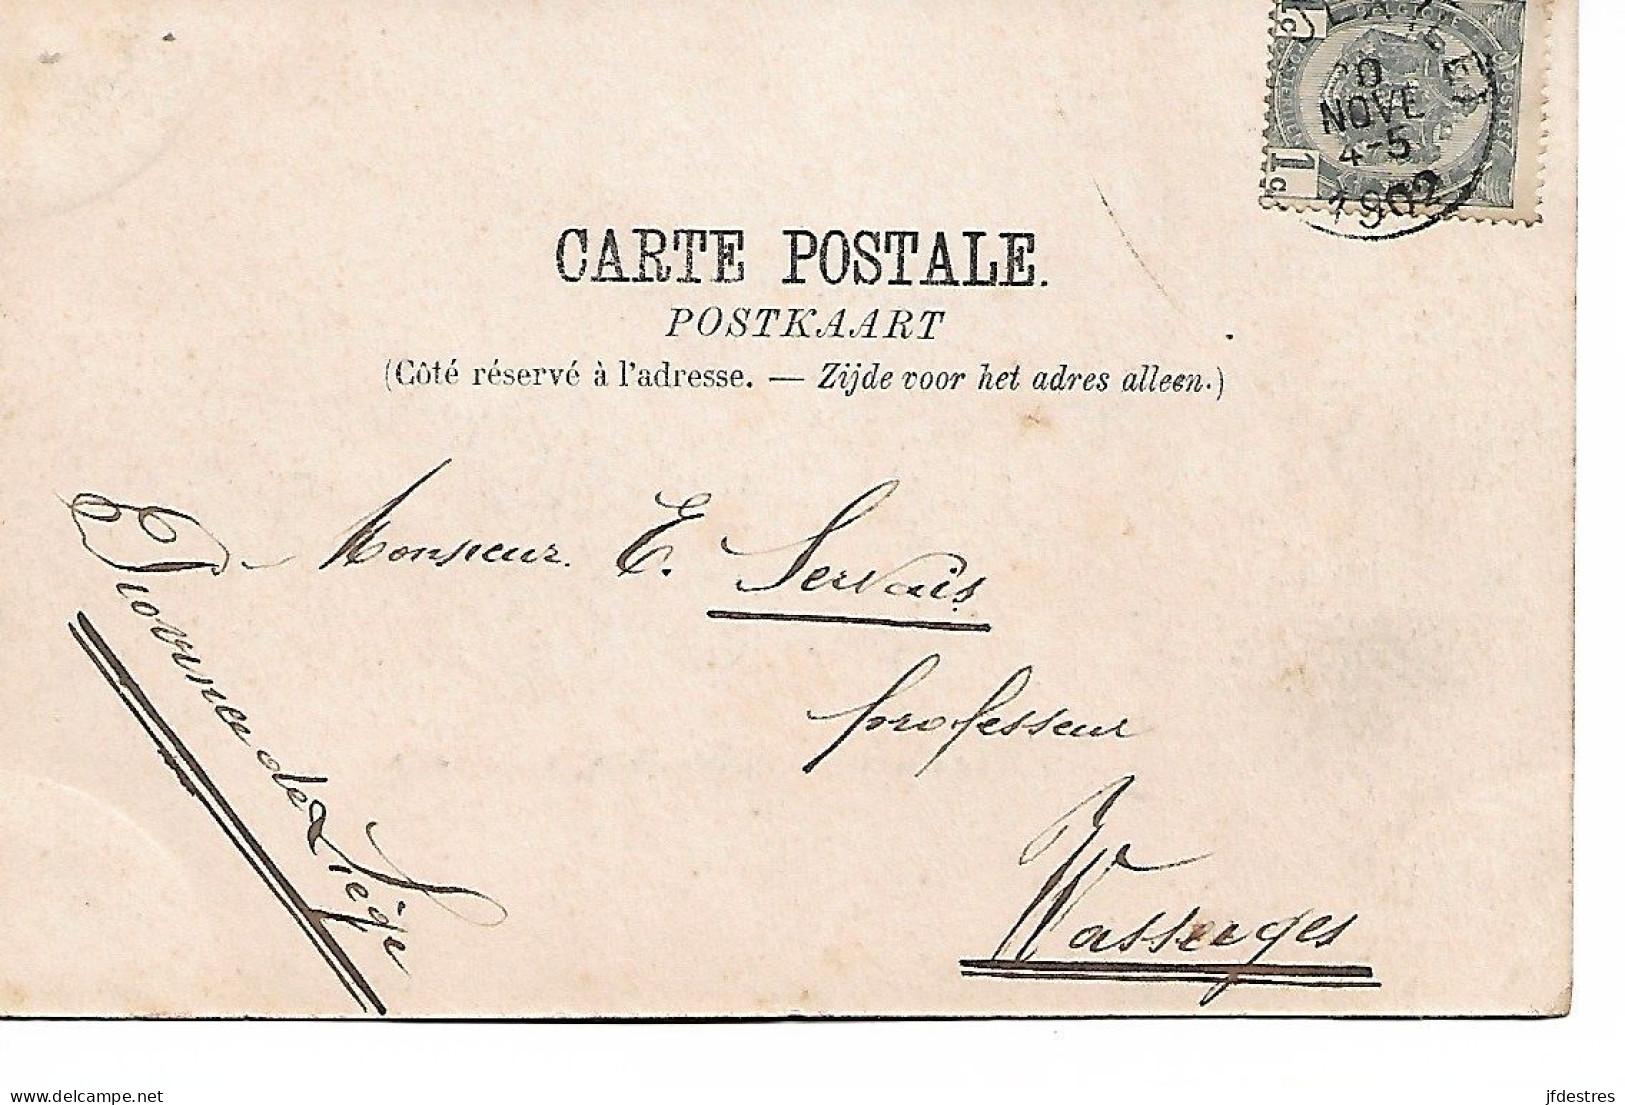 POSTES
1c
NOVE
4-5
1902
CARTE POSTALE.
POSTKAART
(Côté réservé à l'adresse. — Zijde voor het adres alleen.)
Monsieur E. Servais
professeur
Wasseiges
Province de Liège
delcampe.net
jfdestres